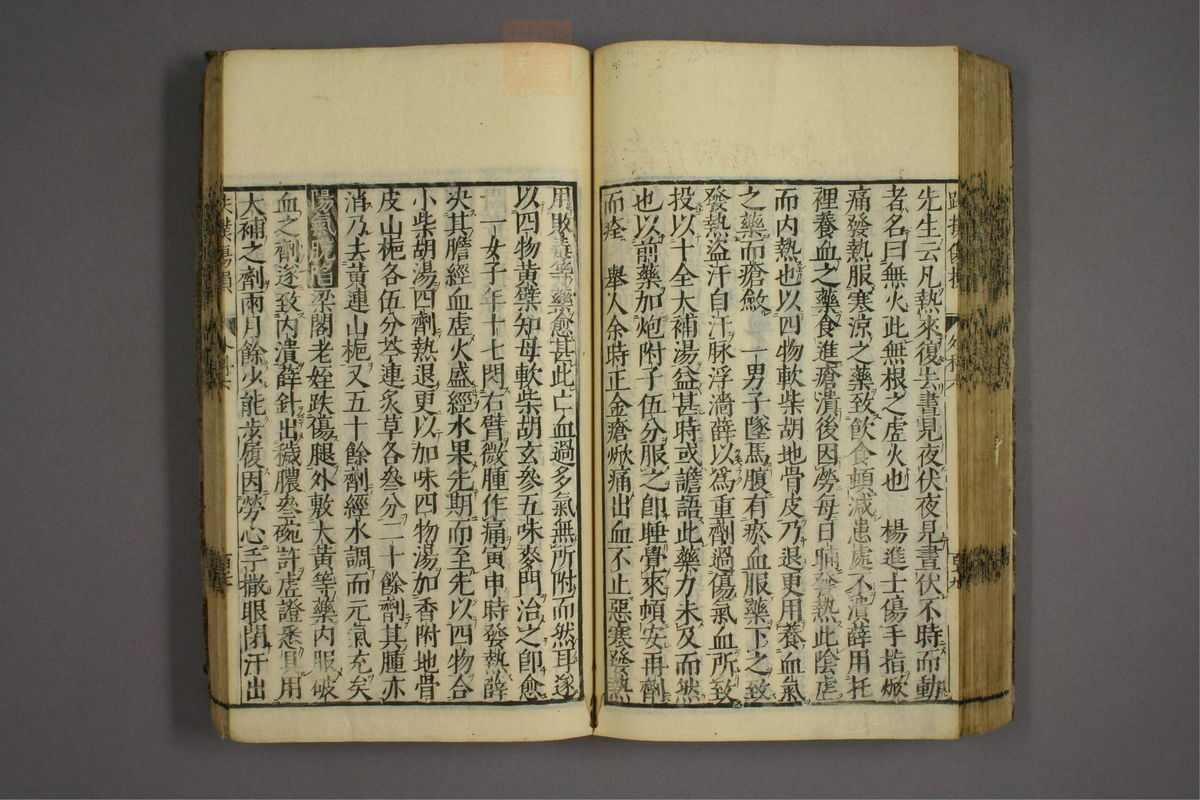 先生云凡熱來復去晝見夜伏夜見晝伏不時而動
者名曰無火此無根之虛火也 楊進士傷手指焮
痛發熱服寒涼之藥致飲食頓減患處不潰薛用托
裡養血之藥食進瘡潰後因勞每日晡發熱此陰虛
而內熱也以四物軟柴胡地骨皮乃退更用養血氣
之藥而瘡斂 一男子墜馬腹有瘀血服藥下之致
發熱盜汗自汗脉浮濇薛以爲重劑過傷氣血所致
投以十全大補湯益甚時或譫語此藥力未及而然
也以前藥加炮附子伍分服之卽睡覺來頓安再劑
而痊 舉人余時正金瘡焮痛出血不止惡寒發熱
用敗毒等藥愈甚此亡血過多氣無所附而然耳遂
以四物黃檗知母軟柴胡玄參五味麥門治之卽愈
一女子年十七閃右臂微腫作痛寅申時發熱薛
決其膽經血虛火盛經水果先期而至先以四物合
小柴胡湯四劑熱退更以加味四物湯加香附地骨
皮山梔各伍分芩連炙草各叄分二十餘劑其腫亦
消乃去黃連山梔又五十餘劑經水調而元氣充矣
陽氣脫陷梁閣老姪跌傷腿外敷大黃等藥內服破
血之劑遂致內潰薛針出穢膿叄碗許虛證悉具用
大補之劑兩月餘少能步履因勞心手撒眼閉汗出